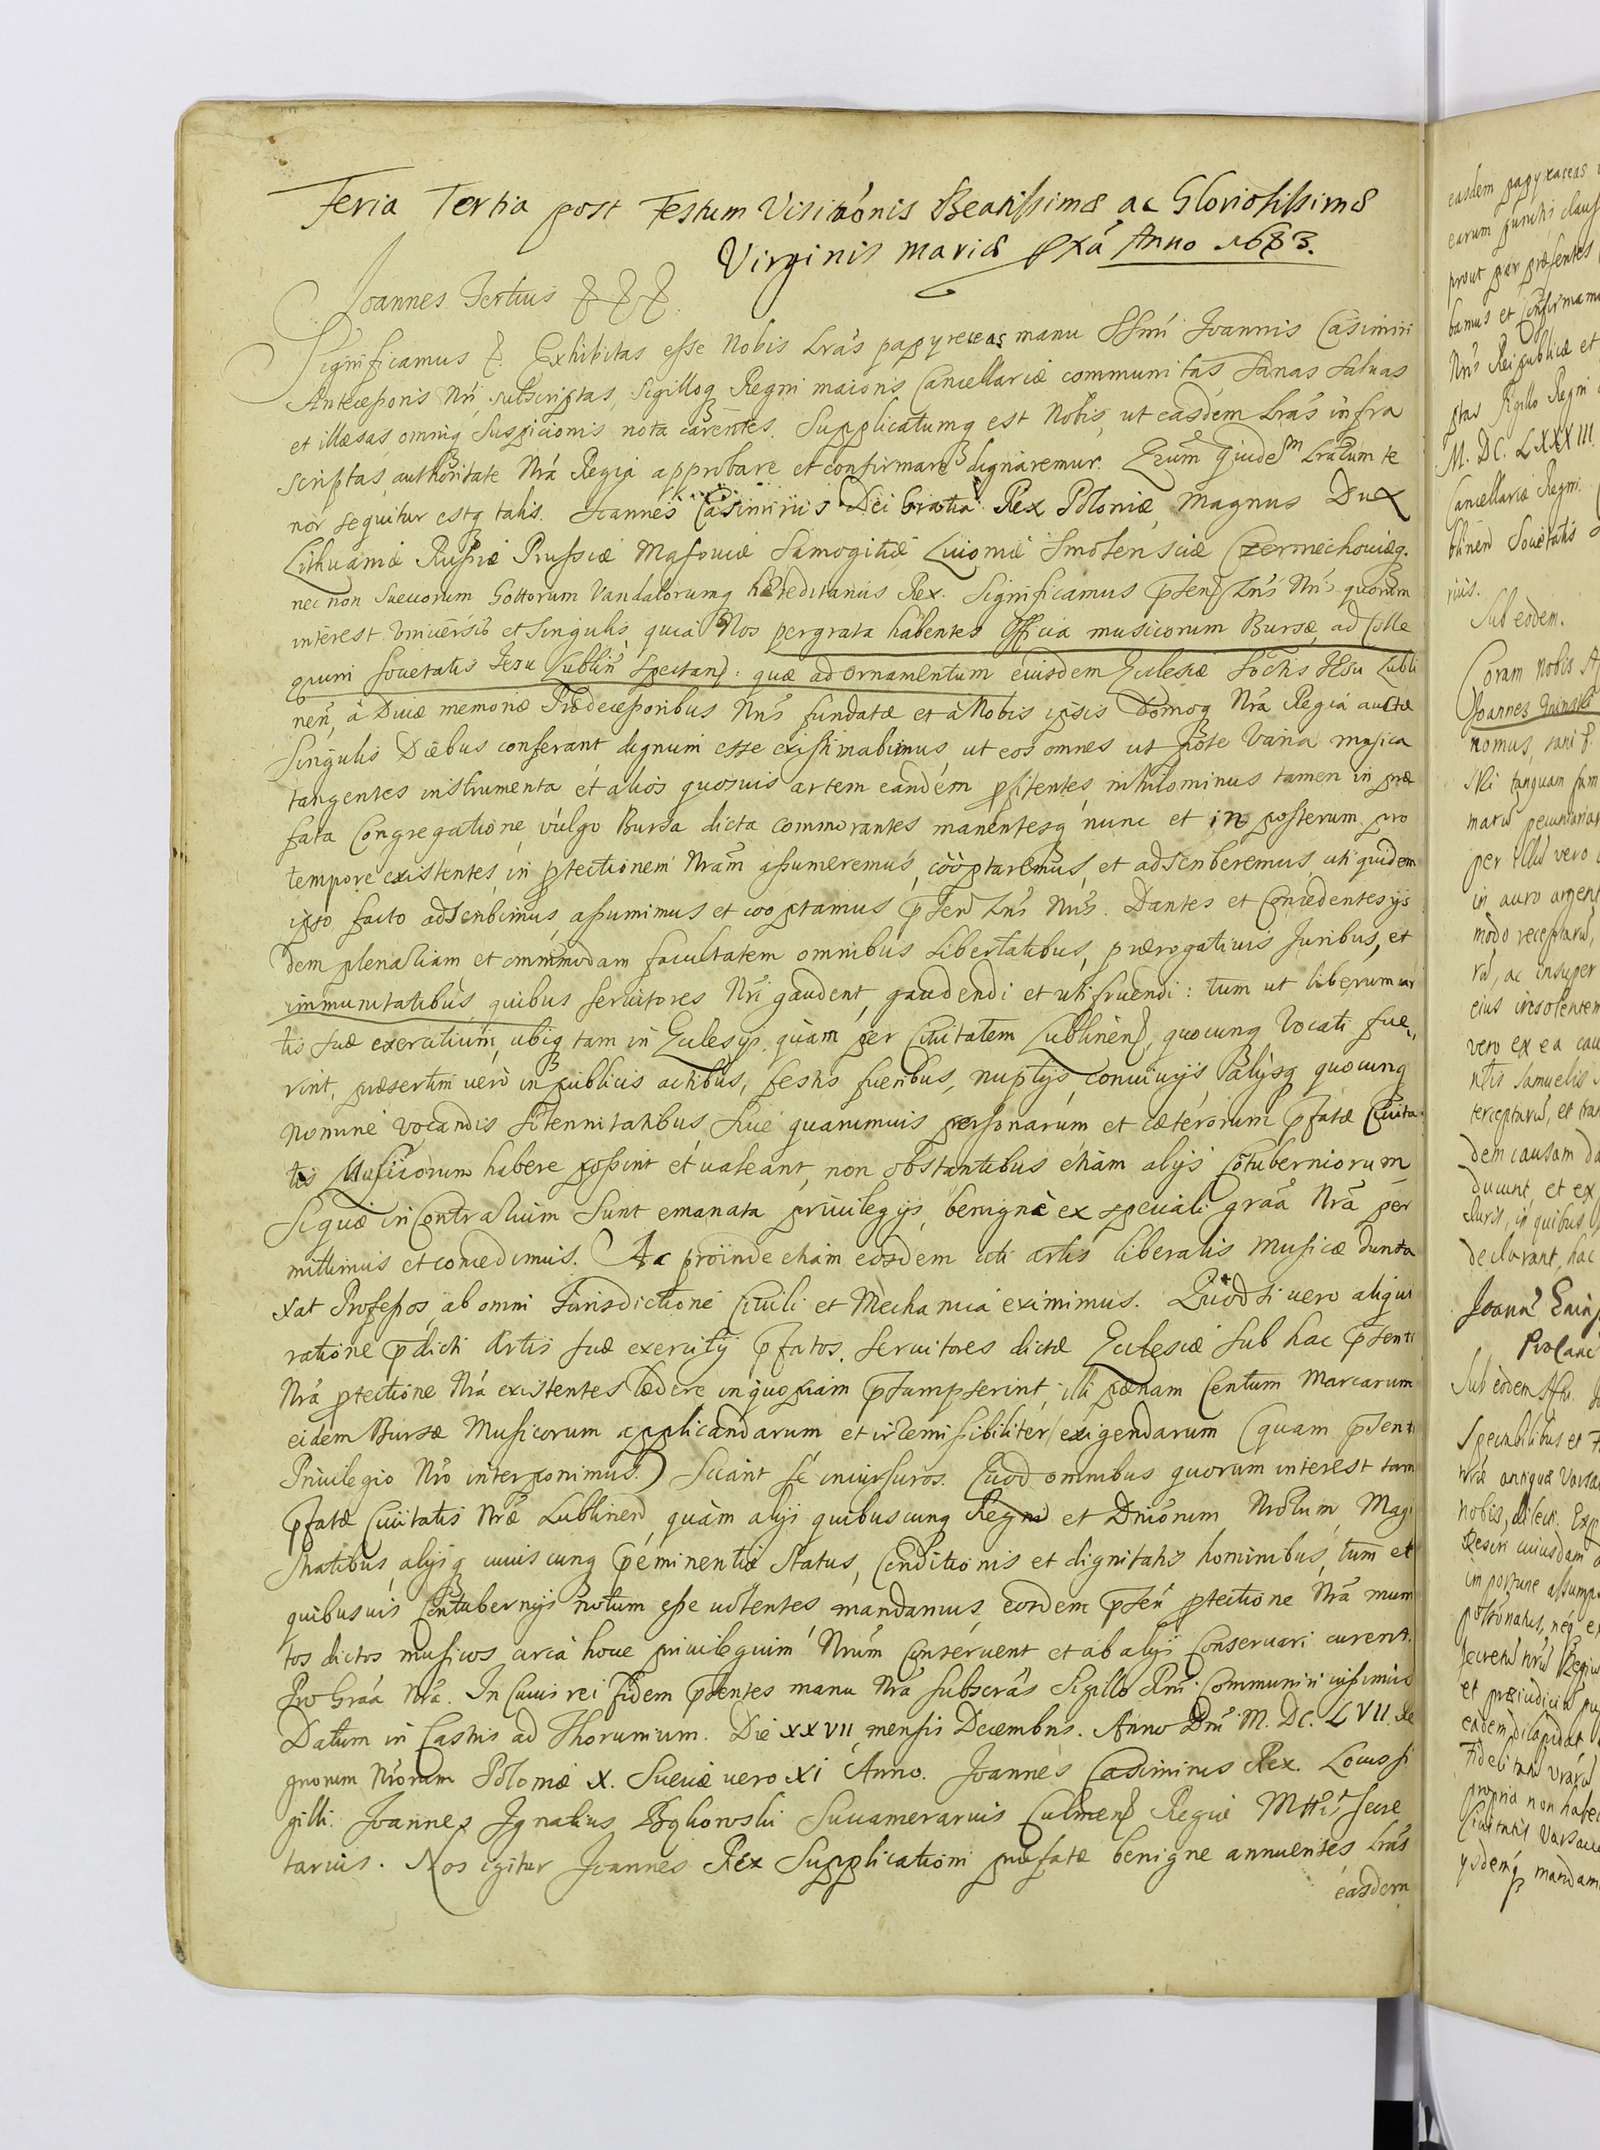 Feria Tertia post Festum Visitaōnis Beatissimæ ac Gloriosissimæ
Virginis Mariæ pxa Anno 1683.
Joannes Tertius
Significamus Exhibitas esse Nobis Lrās papyreceas manu Ssmi Joannis Casimiri
Antecessoris Nri subscriptas, Sigilloq Regni maioris Cancellariæ communitas, sanas saluas
et illæsas, omniq Suspicionis nota carentes. Supplicatumq est Nobis, ut easdem Lrās infra
scriptas, authoritate Nrā Regia approbare et confirmare dignaremur. Lrarum te
nor sequitur estq talis. Joannes Casimirus Dei Gratia Rex Poloniæ, Magnus Dux
Lithuaniæ Russiæ Prussiæ Masouiæ Samogitiæ Liuoniæ Smolensciæ Czerniechouiæq.
nec non Sueuorum Gottorum Vandalorumq hæreditarius Rex. Significamus Lrīs Nrīs quorum
interest Vniuersis et singulis, quia Nos pergrata habentes Officia musicorum Bursæ, ad Colle
gium Societatis Jesu Lublin Spectan: quæ ad ornamentum eiusdem Eclesiæ Soctis JEsu Lubli
nen, à Diuæ memoriæ Prædecessoribus Nrīs fundatæ et à Nobis ipsis Domoq Nrā Regia auctæ
Singulis Diebus conferant dignum esse existimabimus ut eos omnes ut pote varia musica
tangentes instrumenta et alios quosuis artem eandem pfitentes nihilominus tamen in præ
fata Congregatione, vulgo Bursa dicta commorantes manentesq nunc et in posterum pro
tempore existentes, in ptectionem Nram assumeremus, cooptaremus, et adscriberemus, uti quidem
ipso facto adscribimus, assumimus et cooptamus Lrīs Nrīs. Dantes et Concedentes ijs
dem plenariam et ommimodam facultatem omnibus Libertatibus, prærogatiuis Juribus, et
immunitatibus, quibus seruitores Nrī gaudent, gaudendi et uti fruendi: tum ut liberum ar
tis suæ exercitium, ubiq tam in Eclesijs, quàm per Ciuitatem Lublinen, quocunq Vocati fue,
rint, præsertim uero in publicis actibus, festis fueribus, nuptijs, conuiuijs, alijsq quocunq
nomine vocandis solennitatibus siue quarumuis personarum et cæterorum pfatæ Ciuita
tis Musicorum habere possint et ualeant, non obstantibus etiam alijs Cōtuberniorum
Siquæ in Contrarium sunt emanata priuilegijs, benignè ex speciali graā Nrā per
mittimus et concedimus. Ac proinde etiam eosdem uti artis liberalis Musicæ dunta
xat Professos, ab omni Jurisdictione Ciuili et Mechanica eximimus. Quod si uero aliqui
ratione pdicti Artis suæ exercitij pfatos, seruitores dictæ Eclesiæ sub hac psenti
Nrā ptectione Nrā existentes lædere, in quopiam psumpserint, illi pænam Centum Marcarum
eidem Bursæ Musicorum applicandarum et irremissibiliter exigendarum (quam psenti
Priuilegio Nro interponimus) Sciant se incursuros. Quod omnibus quorum interest tam
pfatæ Ciuitatis Nræ Lublinen, quàm alijs quibuscunq Regni et Dniorum Nrorum Magi
stratibus, alijsq cuiuscunq peminentiæ Status, Conditionis et dignitatis hominibus, tum et
quibusuis Contubernijs notum esse uolentes mandamus, eosdem psen ptectione Nrā muni
tos dictos musicos circa hocce priuilegium Nrum Conseruent et ab alijs Conseruari curent.
Pro Graā Nrā. In Cuius rei fidem psentes manu Nrā subscrās Sigillo Rni Communiri iussimus
Datum in Castris ad Thorunium. Die XXVII mensis Decembris. Anno Dni M. DC. LVII. Re
gnorum Nrorum Poloniæ X. Sueciæ uero XI Anno. Joannes Casimirus Rex. Locus si
gilli. Joannes Ignatius Bąkowski Succamerarius Culmen Regiæ Mttis Secre
tarius. Nos igitur Joannes Rex Supplicationi præfatæ benigne annuentes Lrās
easdem
easdem papyraceas
earum punctis claus
prout per præsentes
bamus et Confirmamu
Nrīs Reipublicæ et
ptas Sigillo Regni
M. DC. LXXXIII.
Cancellariæ Regni.
blinen Societatis
rius.
Sub eodem.
Coram Nobis
Joannes
nomus, sani
Mci tanquam sum
per illū vero
in auro argent
modo receptarū,
rū, ac insuper
eius insolentem
vero ex ea cau
ntis Samuelis
terceptarū, et tra
dem causam da
ducunt, et ex
in quibus
declarant, hac
Sub eodem
Spectabilibus et
antiquæ Varsa
nobis, dilect.
cuiusdam
importune assump
et præiudiciū pu
eadem, dilapidat
propria non habe
Ciuitatis Varsaui
ysdemq mandam